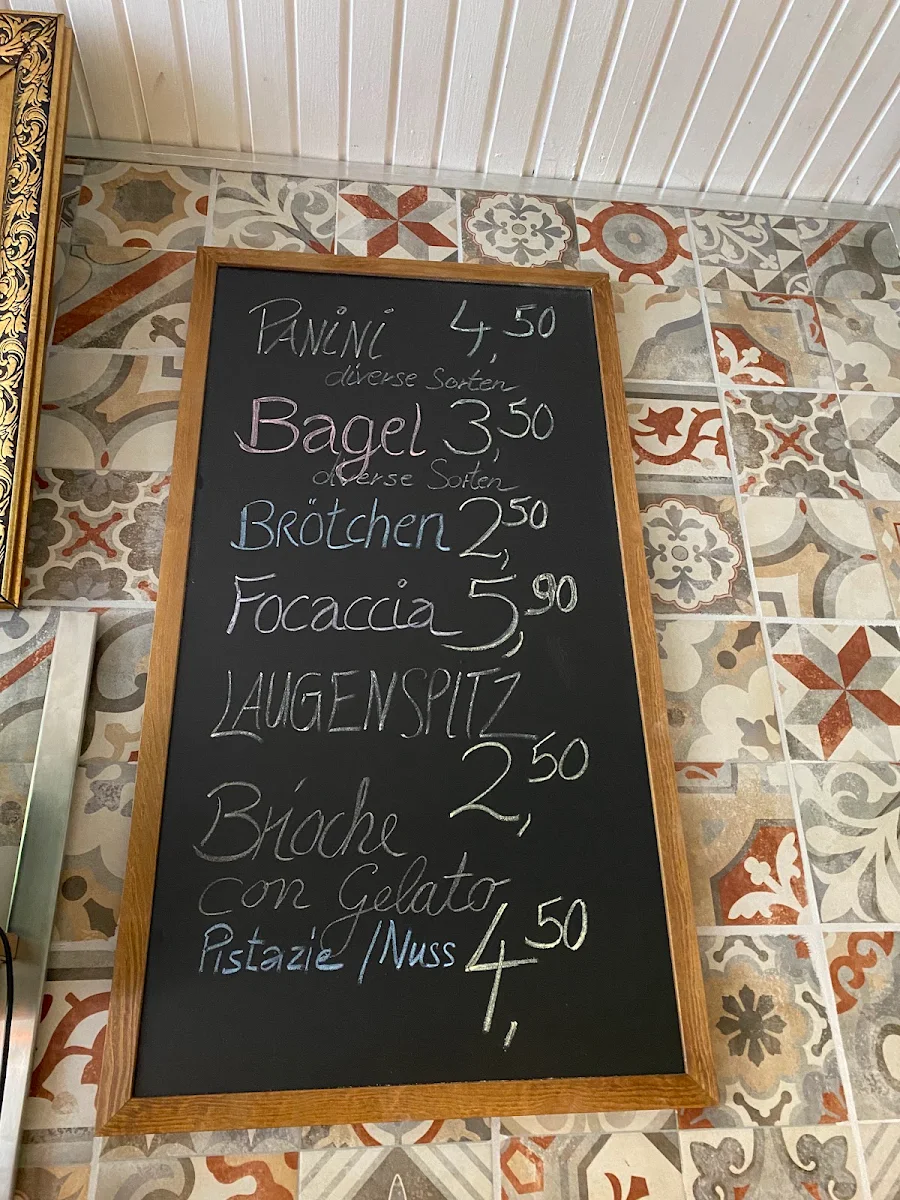 PANINI 4,50
diverse Sorten
Bagel 3,50
diverse Sorten
Brötchen 2,50
Focaccia 5,90
LAUGENSPITZ
2,50
Brioche
con Gelato
Pistazie /Nuss 4,50